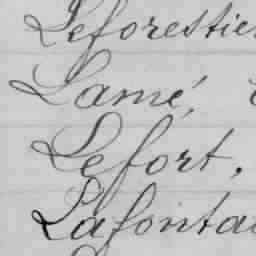 Leforestier
Lamé,
Lefort,
Lafontai